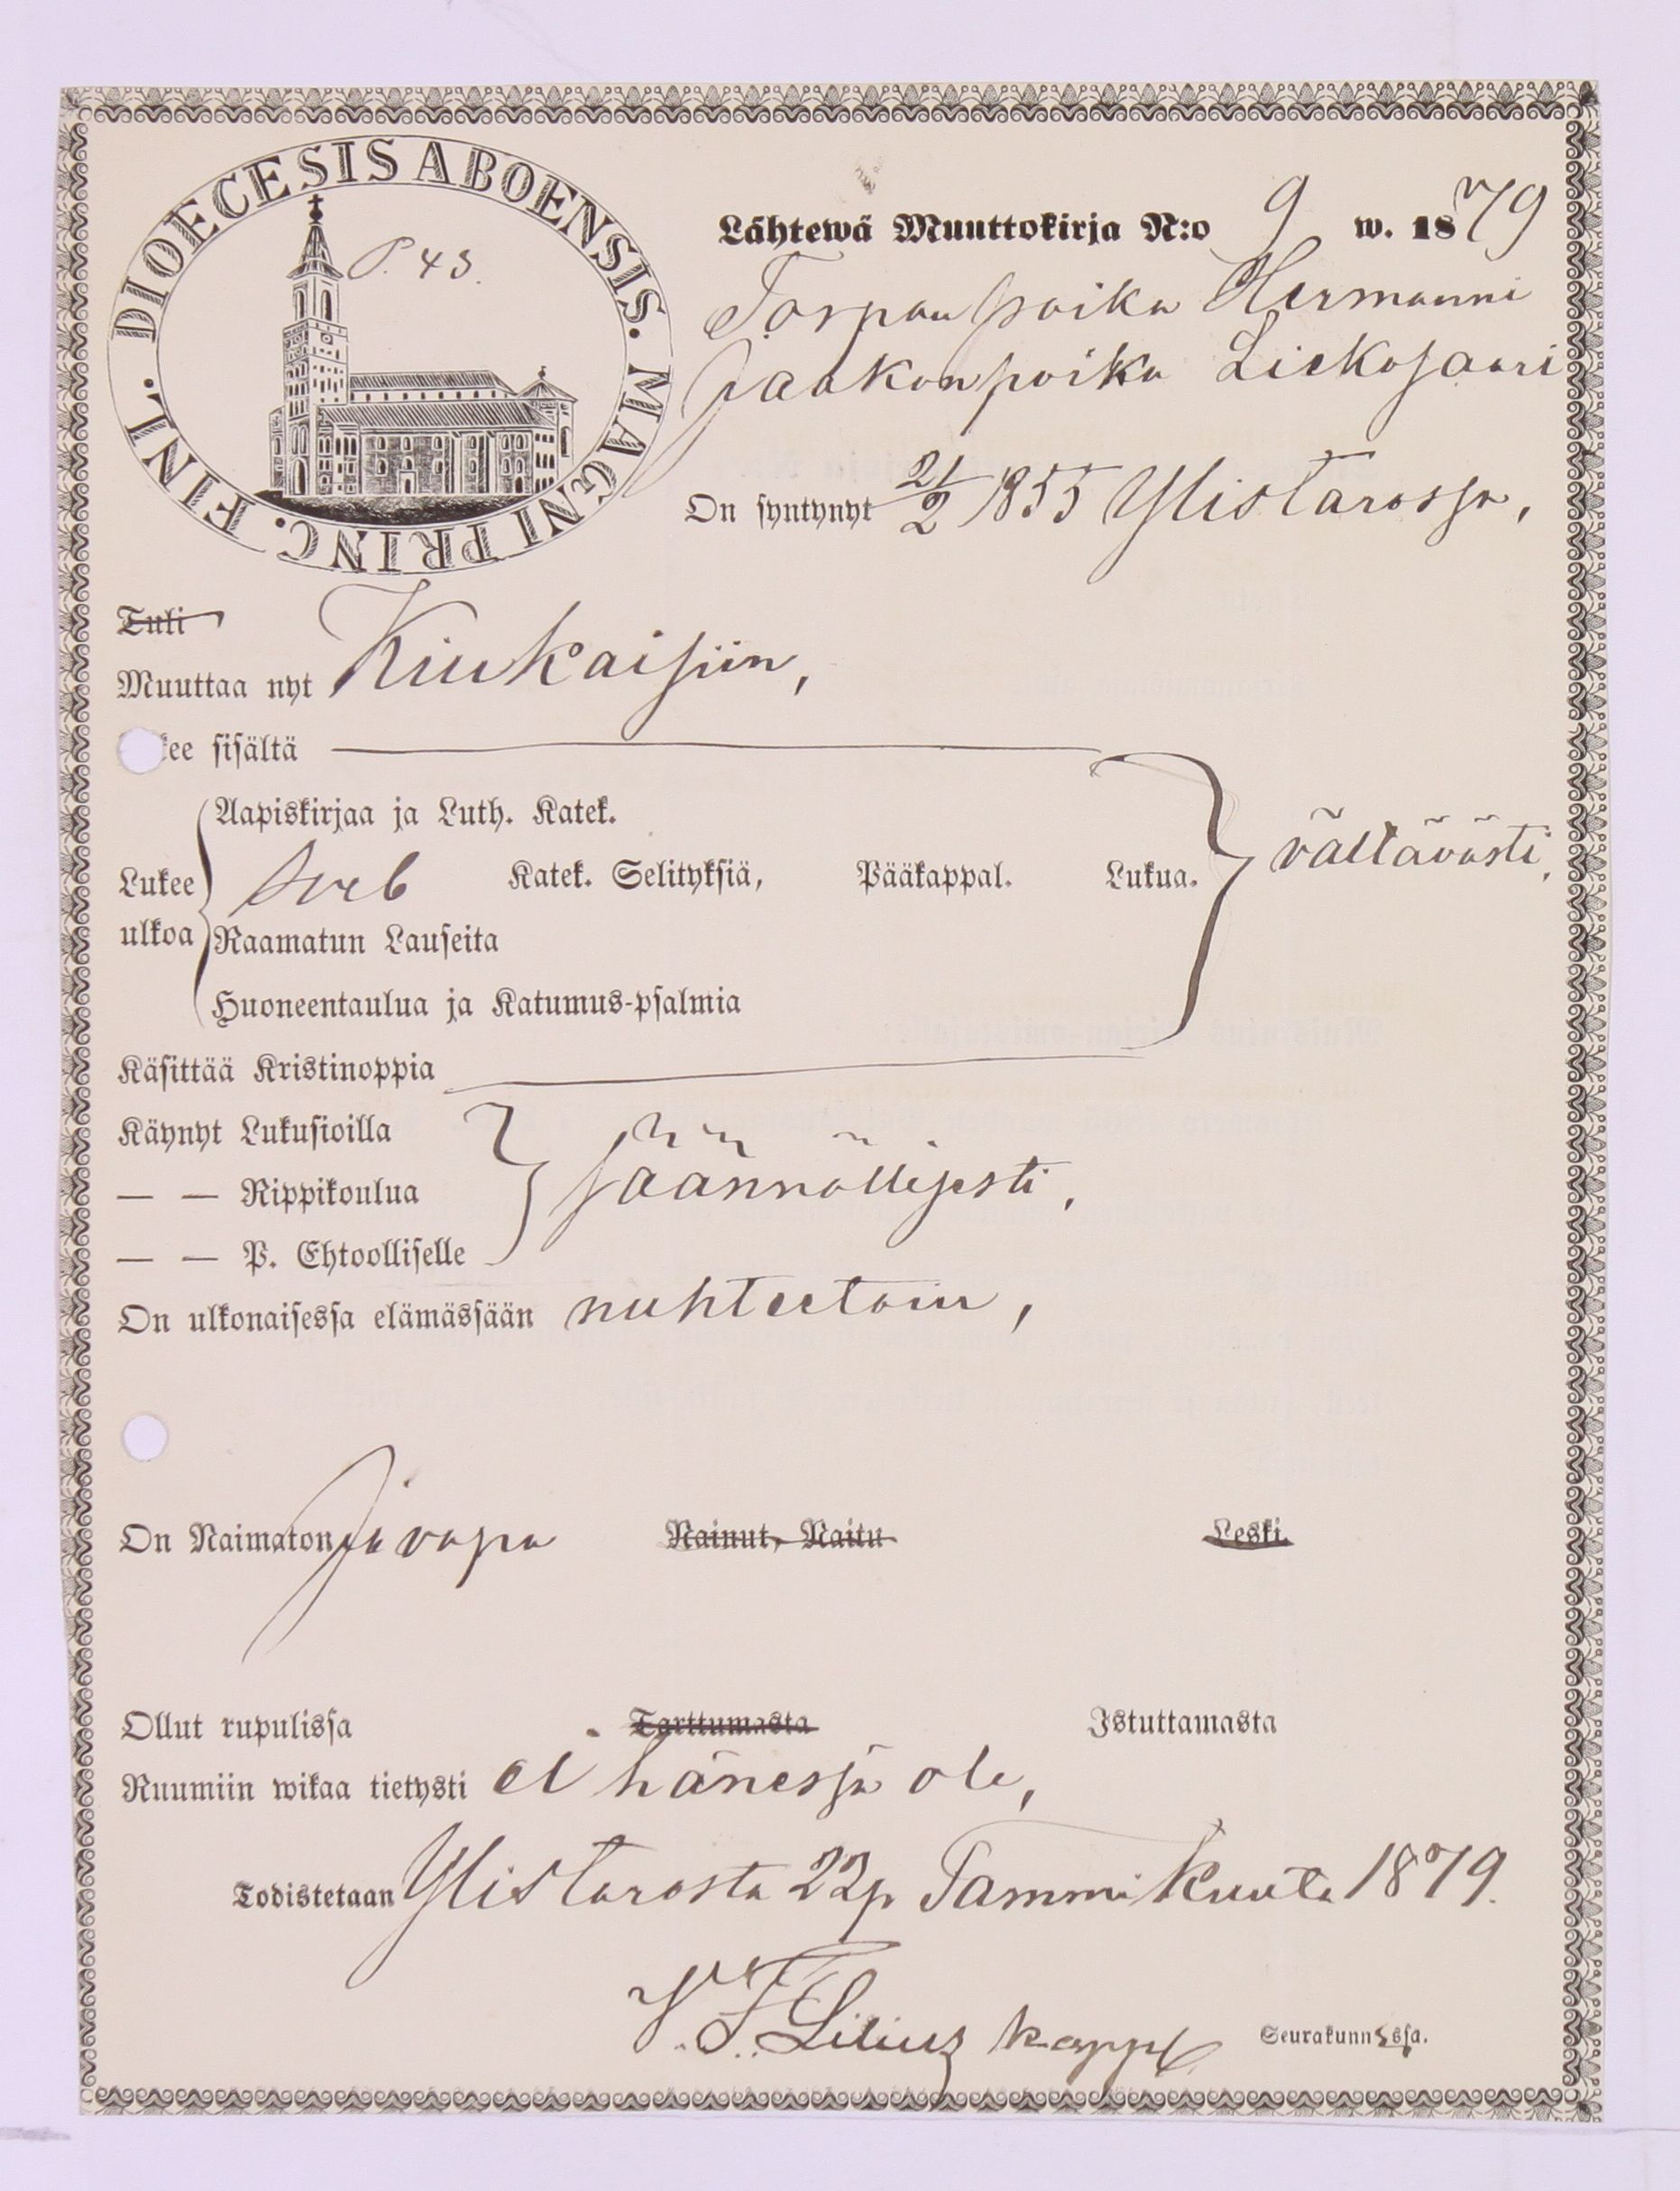 DIOECESIS ABOENSIS. MAGNI PRINC. FINL.
P. 43.
Lähtewä Muuttokirja N:o 9 w. 1879
Torpanpoika Hermanni
Jaakonpoika Liekosaari
On syntynyt 21/2 1855 Ylistarossa,
Tuli
Muuttaa nyt Kiukaisiin,
kee sisältä
Aapiskirjaa ja Luth. Katek.
Lukee ulkoa Sveb Katek. Selityksiä, Pääkappal. Lukua. välttävästi,
Raamatun Lauseita
Huoneentaulua ja Katumus-psalmia
Käsittää Kristinoppia
Käynyt Lukusioilla
— — Rippikoulua säännöllisesti,
— — P. Ehtoolliselle
On ulkonaisessa elämässään nuhteetoin,
On Naimaton ja vapa Nainut, Naitu Leski
Ollut rupulissa Tarttumasta Istuttamasta
Ruumiin wikaa tietysti ei hänessä ole,
Todistetaan Ylistarosta 22 p Tammikuuta 1879.
V. F. Lilius kappl Seurakunnassa.